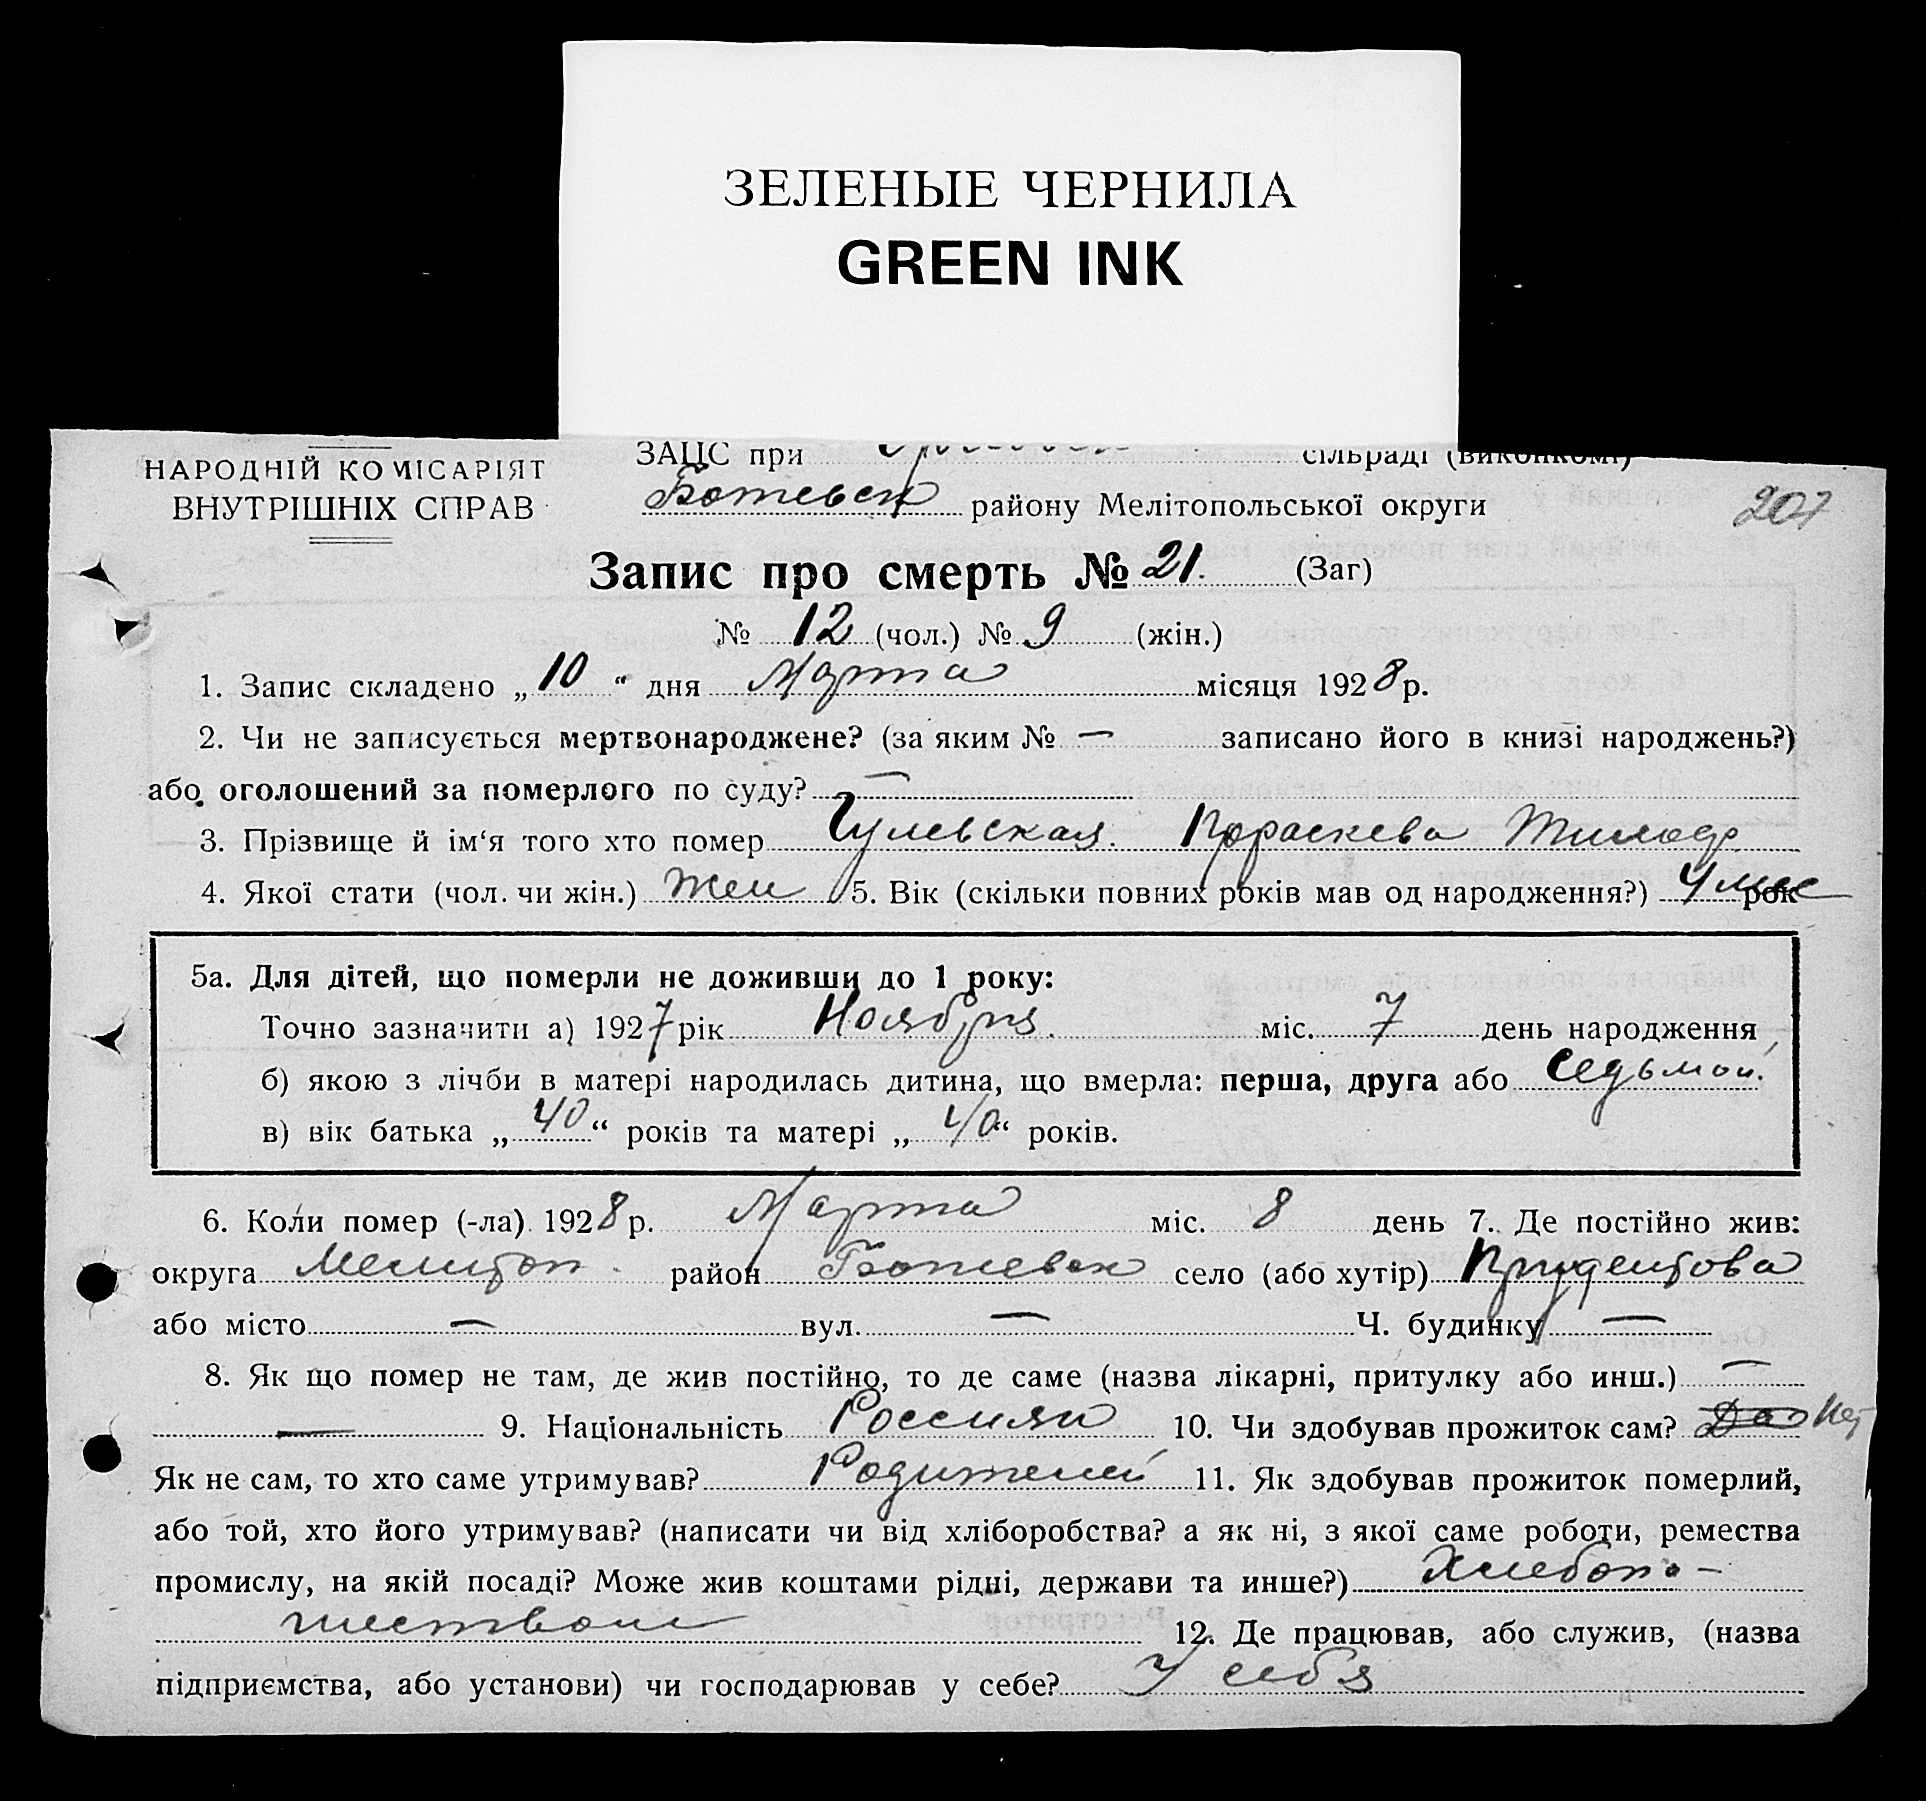 ЗЕЛЕНЫЕ ЧЕРНИЛА
GREEN INK
НАРОДНІЙ КОМІСАРІЯТ
ВНУТРІШНІХ СПРАВ
ЗАЦС при сільраді (виконкомі)
Ботевск району Мелітопольської округи
207
Запис про смерть № 21. (Заг)
№ 12 (чол.) № 9 (жін.)
1. Запис складено „10“ дня Марта місяця 1928 р.
2. Чи не записується мертвонароджене? (за яким № — записано його в книзі народжень?)
або оголошений за померлого по суду? —
3. Прізвище й ім‘я того хто помер Гулевская. Параскева
4. Якої стати (чол. чи жін.) Жен 5. Вік (скільки повних років мав од народження?) 4 мес рок
5а. Для дітей, що померли не доживши до 1 року:
Точно зазначити а) 1927 рік Ноября міс. 7 день народження
б) якою з лічби в матері народилась дитина, що вмерла: перша, друга або седьмой.
в) вік батька „40“ років та матері „40“ років.
6. Коли помер (-ла) 1928 р. Марта міс. 8 день 7. Де постійно жив:
округа Мелитоп. район Ботиевск село (або хутір)
або місто — вул. — Ч. будинку —
8. Як що помер не там, де жив постійно, то де саме (назва лікарні, притулку або инш.) —
— 9. Національність Россиян 10. Чи здобував прожиток сам? Да Нет
Як не сам, то хто саме утримував? Родителей 11. Як здобував прожиток померлий,
або той, хто його утримував? (написати чи від хліборобства? а як ні, з якої саме роботи, ремества
промислу, на якій посаді? Може жив коштами рідні, держави та инше?) Хлебопа-
шеством 12. Де працював, або служив, (назва
підприємства, або установи) чи господарював у себе? У себя